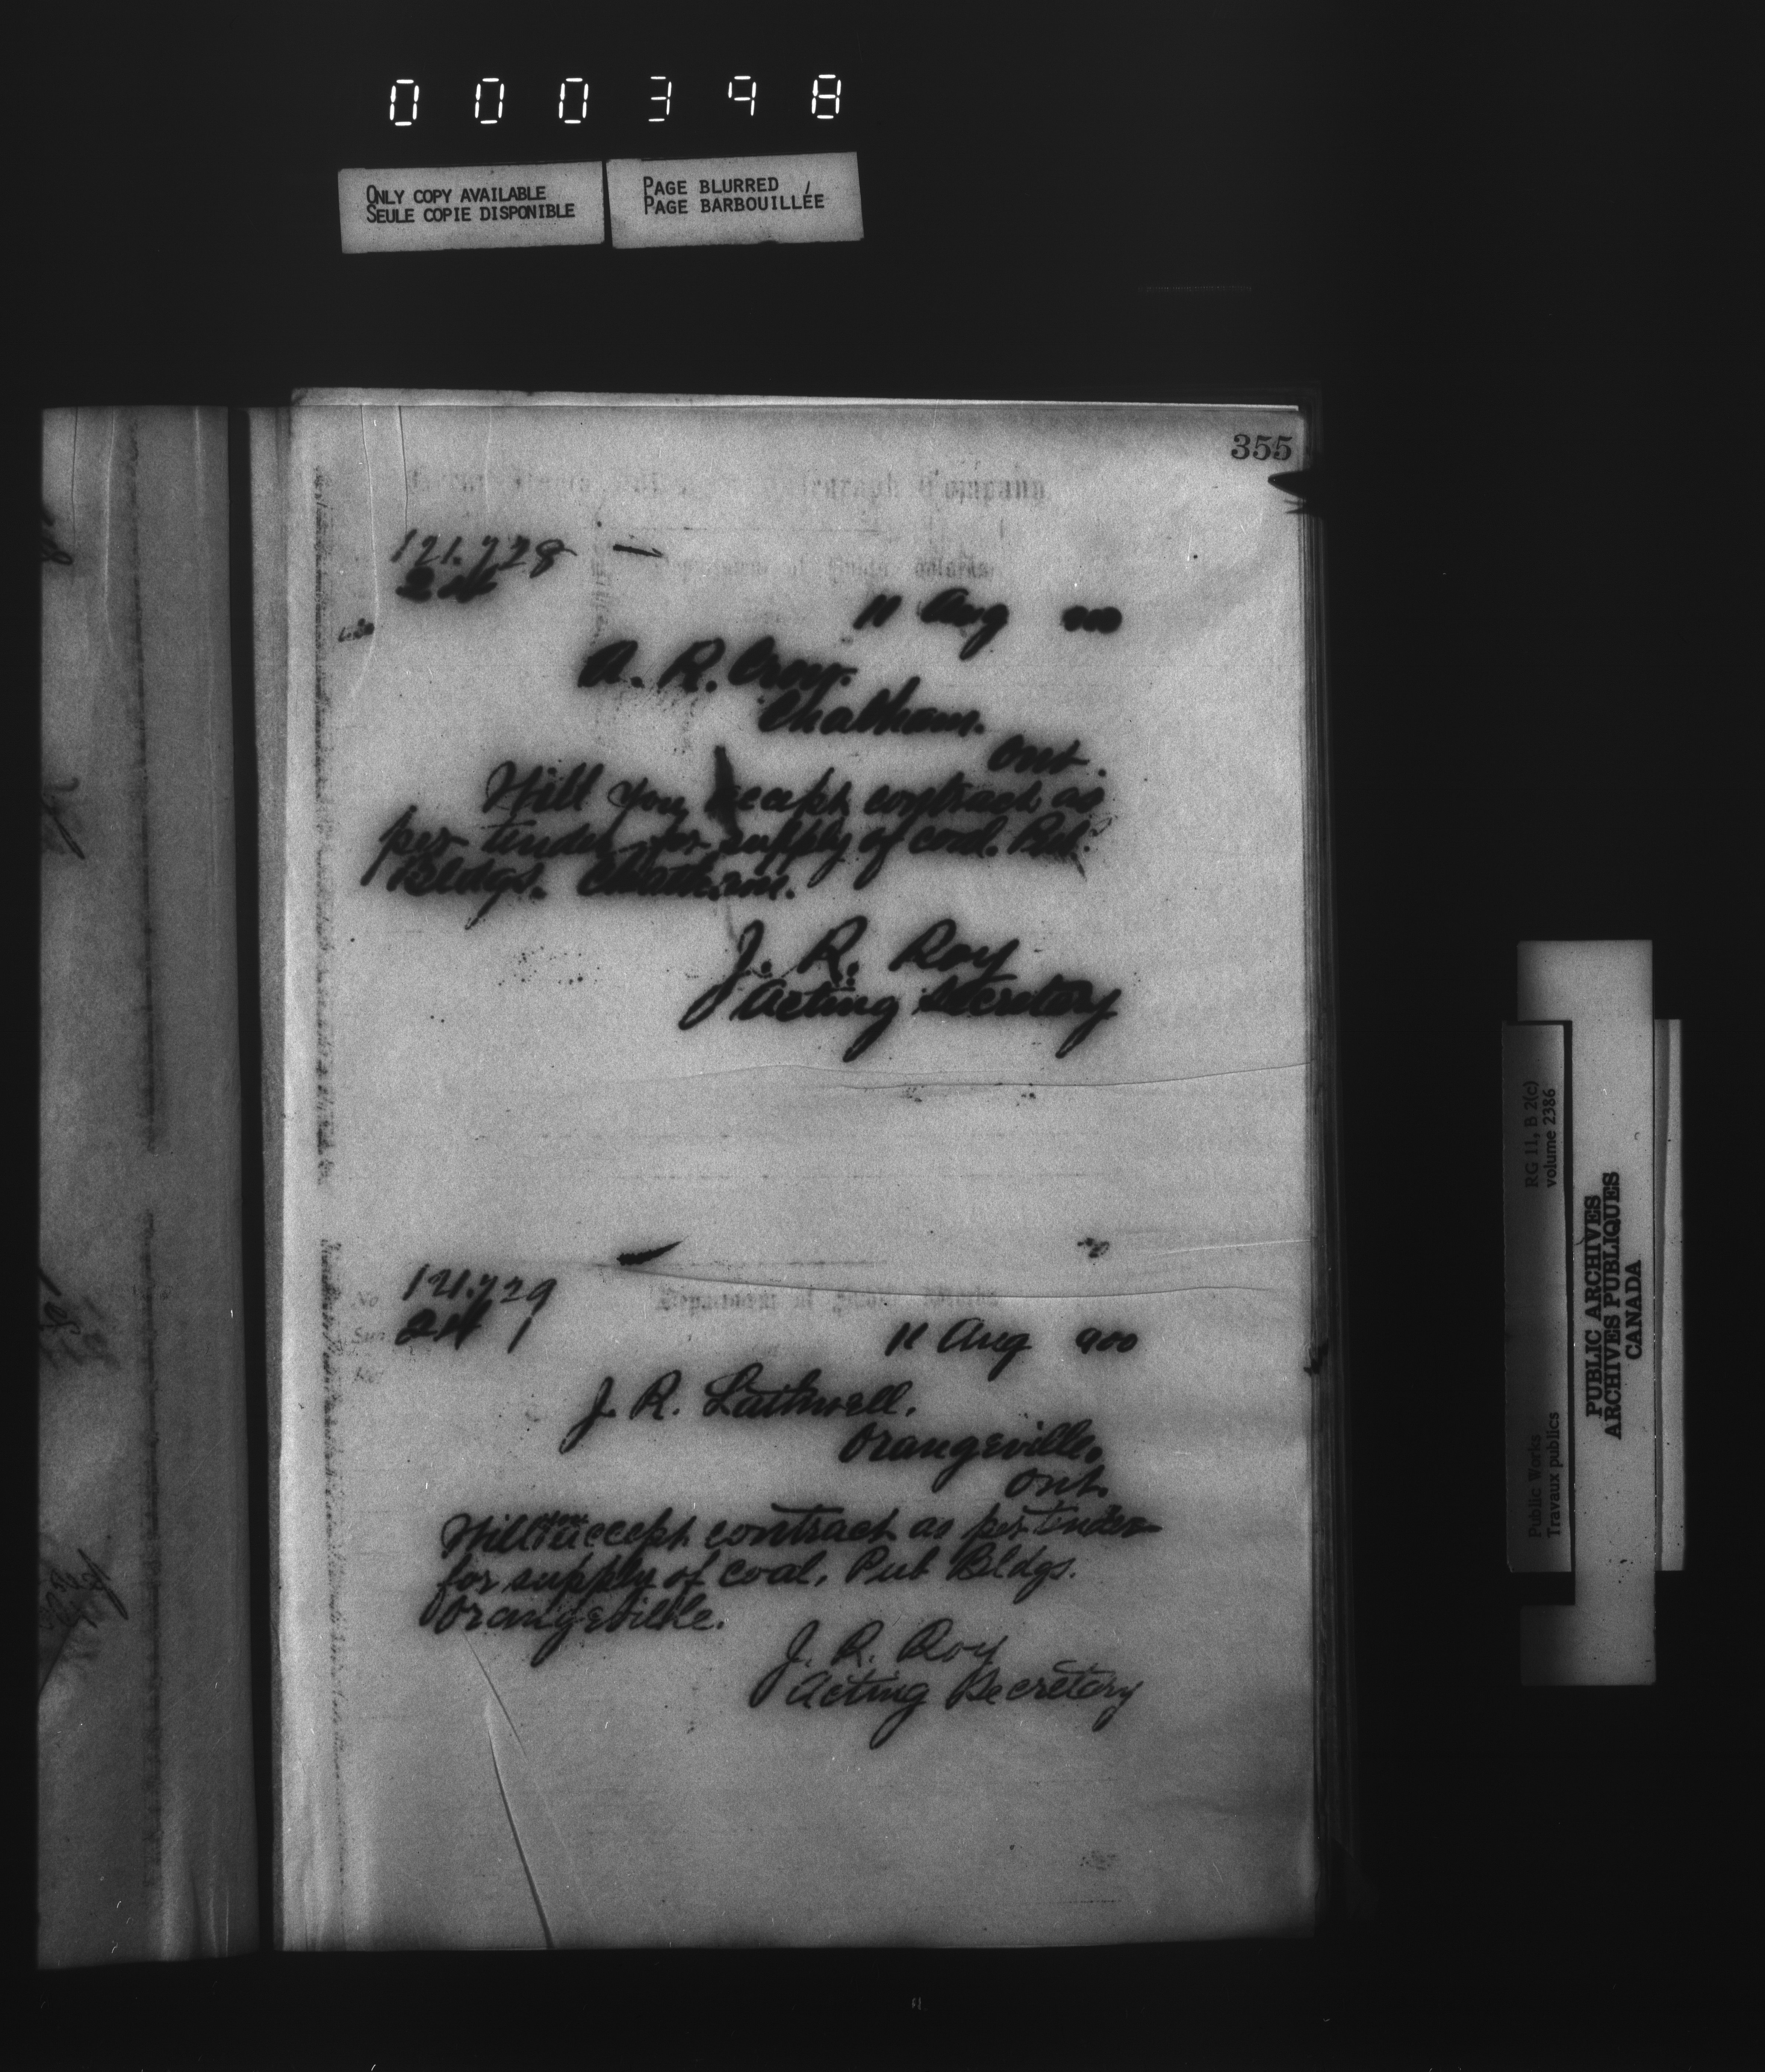 000398
ONLY COPY AVAILABLE
SEULE COPIE DISPONIBLE
PAGE BLURRED
PAGE BARBOUILLÉE
355
Telegraph Company
121.728
11 Aug 900
A. R. Crow.
Chatham.
Ont.
Will you accept contract as
per tender for supply of coal. Pub.
Bldgs. Chatham.
J. R. Roy
Acting Secretary
No 121.729
Department of Public Works
11 Aug 900
J. R. Laithwell.
Orangeville.
Ont.
Will you accept contract as per tender
for supply of coal, Pub Bldgs.
Orangeville.
J. R. Roy
Acting Secretary
RG 11, B 2(c)
volume 2386
Public Works
Travaux publics
PUBLIC ARCHIVES
ARCHIVES PUBLIQUES
CANADA